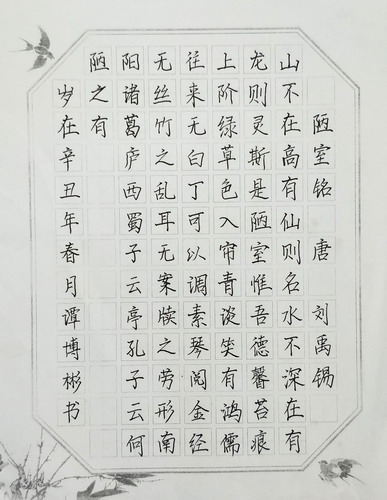 陋室铭 唐 刘禹锡
山不在高有仙则名水不深在有
龙则灵斯是陋室惟吾德馨苔痕
上阶绿草色入帘青谈笑有鸿儒
往来无白丁可以调素琴阅金经
无丝竹之乱耳无案牍之劳形南
阳诸葛庐西蜀子云亭孔子云何
陋之有
岁在辛丑年春月谭博彬书